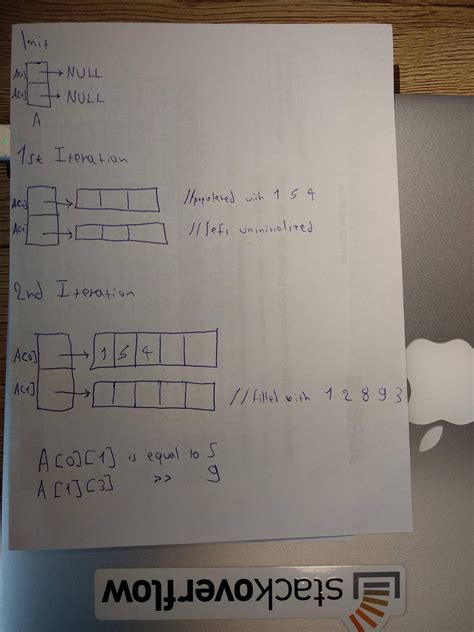 Init
A[0] → NULL
A[1] → NULL
A
1st Iteration
A[0] → //populated with 1 5 4
A[1] → //left uninitialized
2nd Iteration
A[0] → 1 5 4
A[1] → //filled with 1 2 8 9 3
A[0][1] is equal to 5
A[1][3] >> 9
stackoverflow